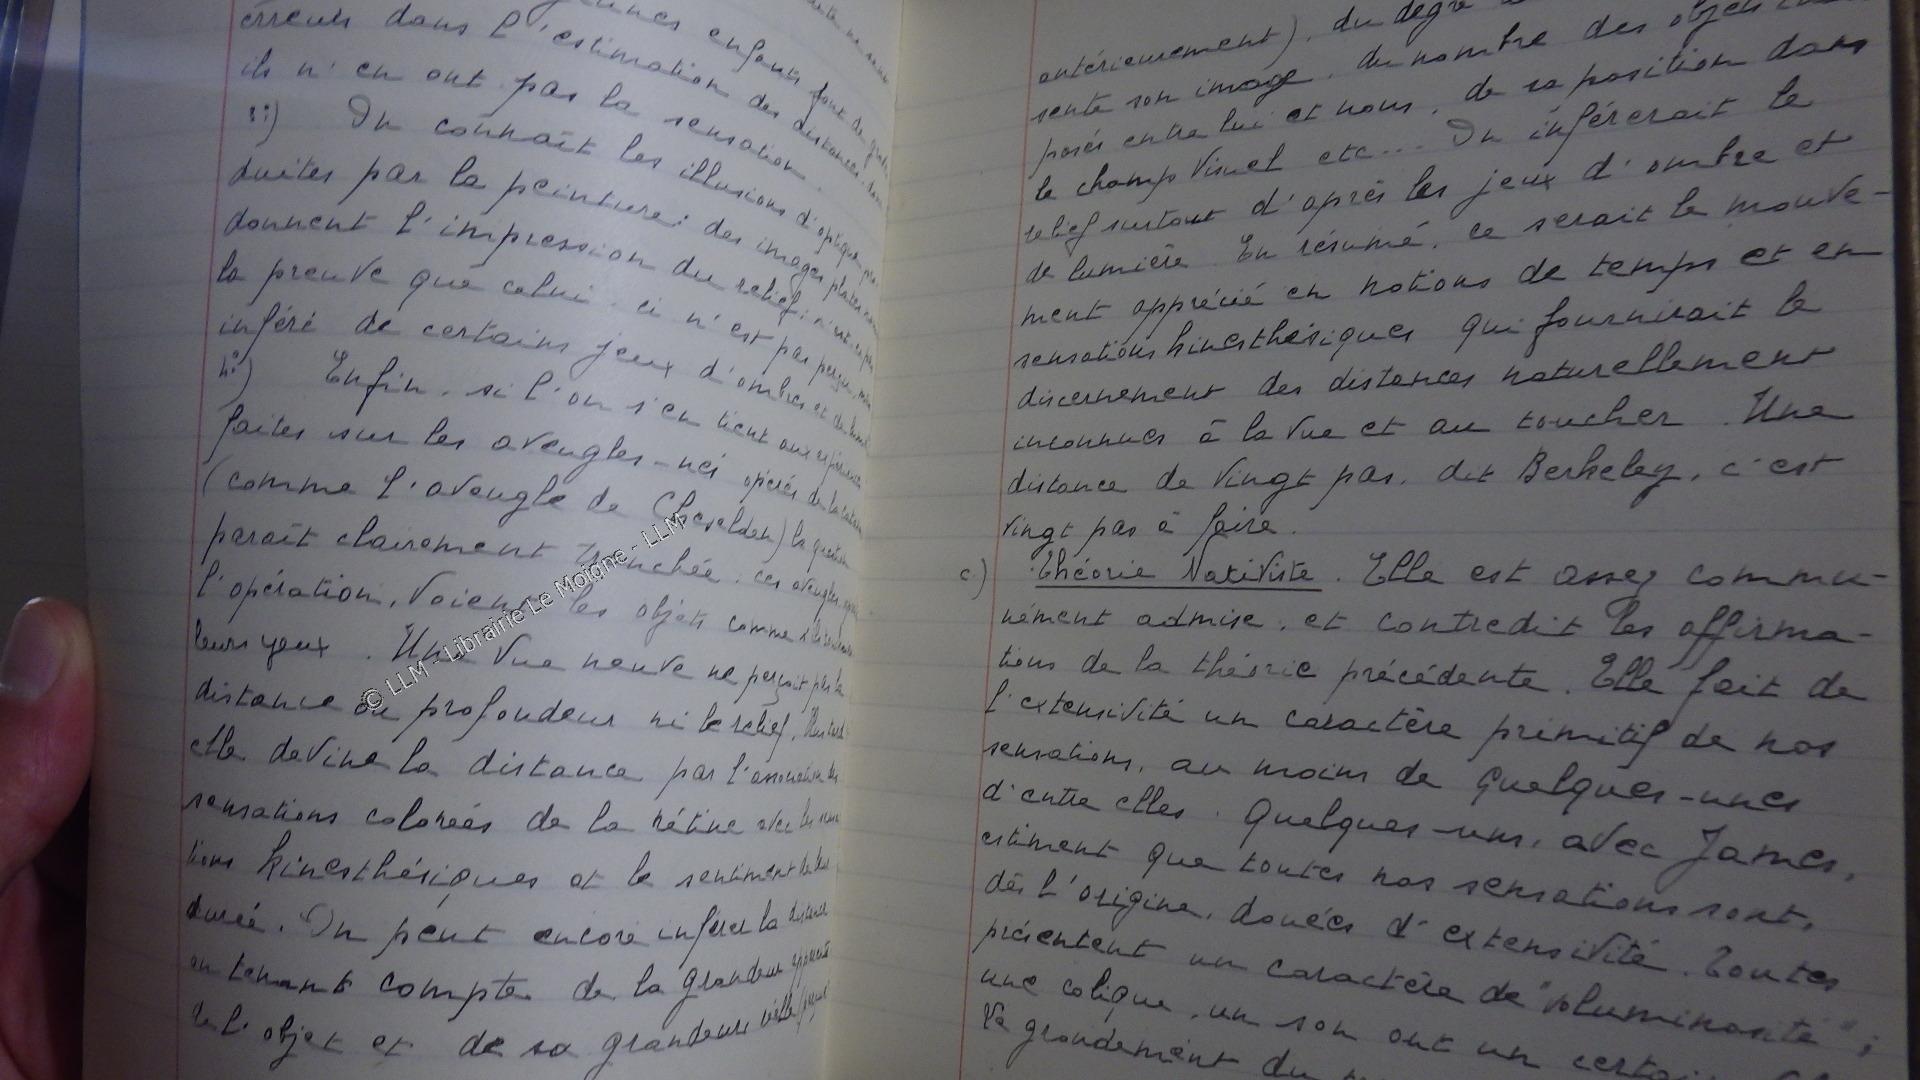 jeunes enfants font de
erreurs dans l'estimation des distances
ils n'en ont pas la sensation.
On connaît les illusions d'optique
duites par la peinture: des images plates
donnent l'impression du relief; n'est-ce pas
la preuve que celui-ci n'est pas perçu, mais
inféré de certains jeux d'ombres et de
Enfin, si l'on s'en tient aux expériences
faites sur les aveugles-nés opérés de la
(comme l'aveugle de Cheselden) la question
paraît clairement tranchée: ces aveugles, après
l'opération, voient les objets comme
leurs yeux. Une vue neuve ne perçoit pas la
distance ou profondeur ni le relief. Plus tard
elle devine la distance par l'association des
sensations colorées de la rétine avec les sensa-
tions kinesthésiques et le sentiment de leur
durée. On peut encore inférer la distance
en tenant compte de la grandeur apparente
de l'objet et de sa grandeur réelle
antérieurement), du degré
sente son image, du nombre des objets
posés entre lui et nous, de sa position dans
le champ visuel etc... On inférerait le
relief surtout d'après les jeux d'ombre et
de lumière. En résumé, ce serait le mouve-
ment apprécié en notions de temps et en
sensations kinesthésiques qui fournirait le
discernement des distances naturellement
inconnues à la vue et au toucher. Une
distance de vingt pas, dit Berkeley, c'est
vingt pas à faire.
c) Théorie Nativiste. Elle est assez commu-
nément admise, et contredit les affirma-
tions de la théorie précédente. Elle fait de
l'extensivité un caractère primitif de nos
sensations, au moins de quelques-unes
d'entre elles. Quelques-uns, avec James,
estiment que toutes nos sensations sont,
dès l'origine, douées d'extensivité. Toutes
présentent un caractère de "voluminosité";
une colique, un son ont un certain
Le grondement du
© LLM - Librairie Le Moigne - LLM